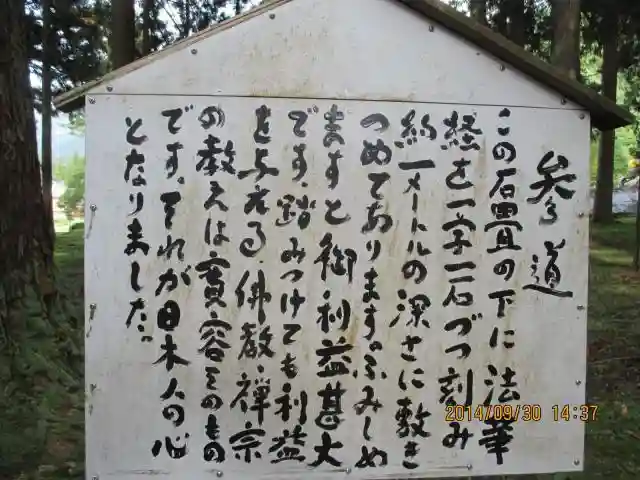 参道
この石畳の下に法華
経を一字一石づつ刻み
約一メートルの深さに敷き
つめてあります。ふみしめ
ますと御利益甚大
です。踏みつけても利益
を与える。佛教・禅宗
の教えは寛容そのもの
です。それが日本人の心
となりました。
2014/09/30 14:37